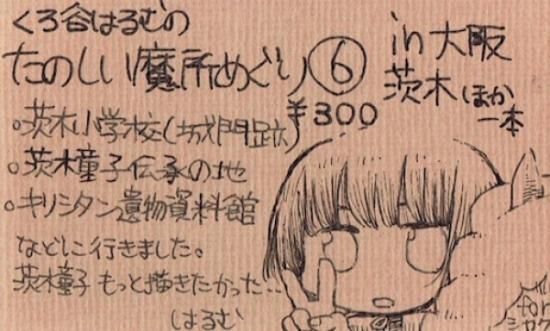 くろ谷はるむの
たのしい魔所めぐり⑥
in大阪
茨木ほか
一本
¥300
・茨木小学校(城門跡)
・茨木童子伝承の地
・キリシタン遺物資料館
などに行きました。
茨木童子 もっと描きたかった‥
はるむ
for